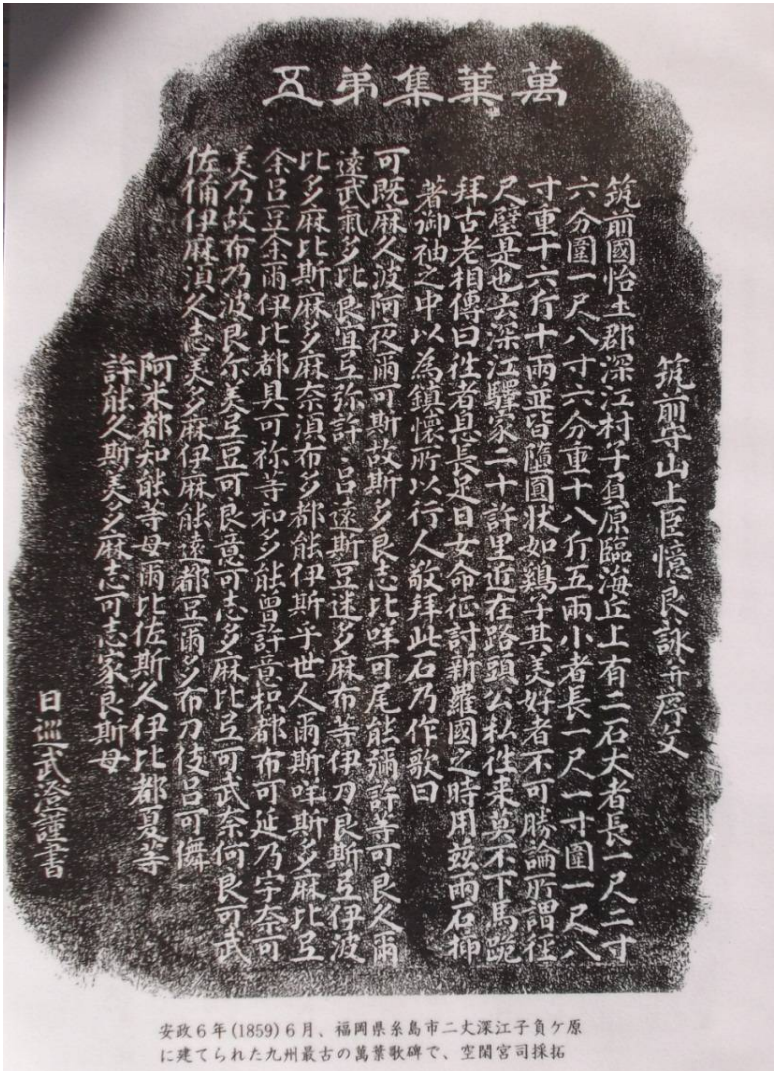 萬葉集弟五
筑前守山上臣憶良詠并序文
筑前國怡土郡深江村子負原臨海丘上有二石大者長一尺二寸
六分圍一尺八寸六分重十八斤五兩小者長一尺一寸圍一尺八
寸重十六斤十兩並皆隨圓状如鶏子其美好者不可勝論所謂径
尺璧是也去深江驛家二十許里近在路頭公私徃来莫不下馬跪
拜古老相傳曰徃者息長足日女命征討新羅國之時用茲兩石挿
著御袖之中以為鎮懐所以行人敬拜此石乃作歌曰
可既麻久波阿夜爾可斯故斯多良志比咩可尾能彌許等可良久爾
遠武氣多比良宜弖弥許々呂遠斯豆迷多麻布等伊刀良斯弖伊波
比多麻比斯麻多麻奈湏布多都能伊斯乎世人爾斯咩斯多麻比弖
余呂豆余爾伊比都具可祢等和多能曾許意枳都布可延乃宇奈可
美乃故布乃波良尓美弖豆可良意可志多麻比弖可武奈何良可武
佐備伊麻湏久志美多麻伊麻能遠都豆爾多布刀伎呂可儛
阿米都知能等母爾比佐斯久伊比都夏等
許能久斯美多麻志可志家良斯母
日巡武澄謹書
安政6年(1859)6月、福岡県糸島市二丈深江子負ケ原
に建てられた九州最古の萬葉歌碑で、空閑宮司採拓